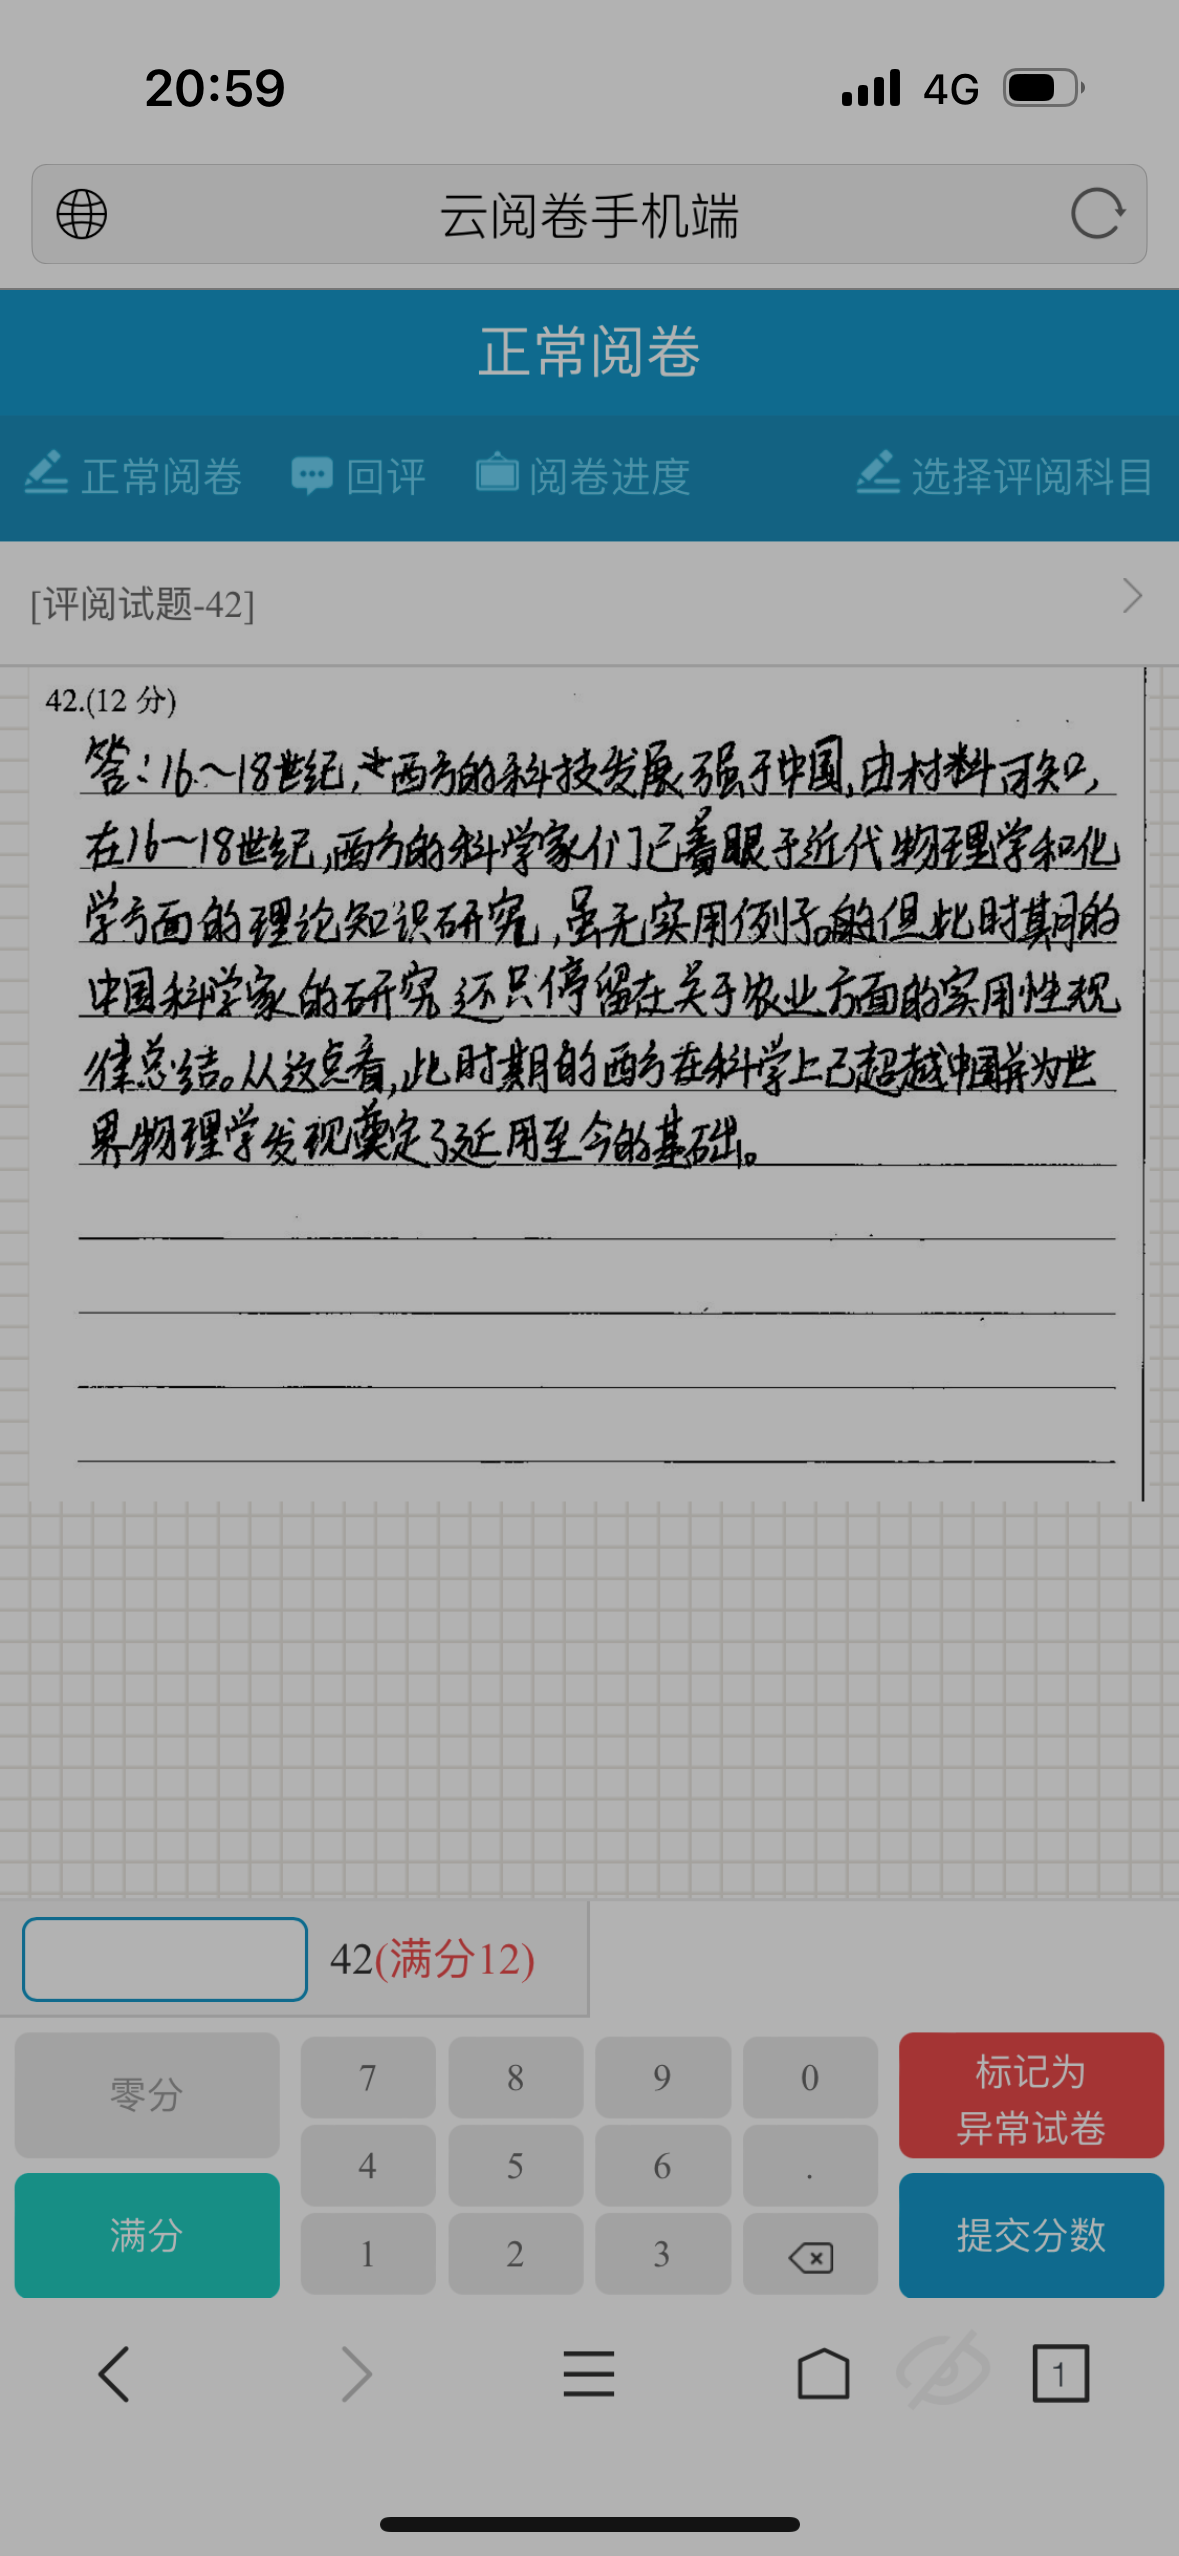 20:59
4G
云阅卷手机端
正常阅卷
正常阅卷 回评 阅卷进度 选择评阅科目
[评阅试题-42]
42.(12 分)
答:16~18世纪,西方的科技发展强于中国,由材料可知,
在16~18世纪,西方的科学家们已着眼于近代物理学和化
学方面的理论知识研究,虽无实用例子。但此时期的
中国科学家的研究还只停留在关于农业方面的实用性规
律总结。从这点看,此时期的西方在科学上已超越中国并为世
界物理学发现奠定了延用至今的基础。
42(满分12)
零分 7 8 9 0 标记为
异常试卷
4 5 6 .
满分 1 2 3 提交分数
1